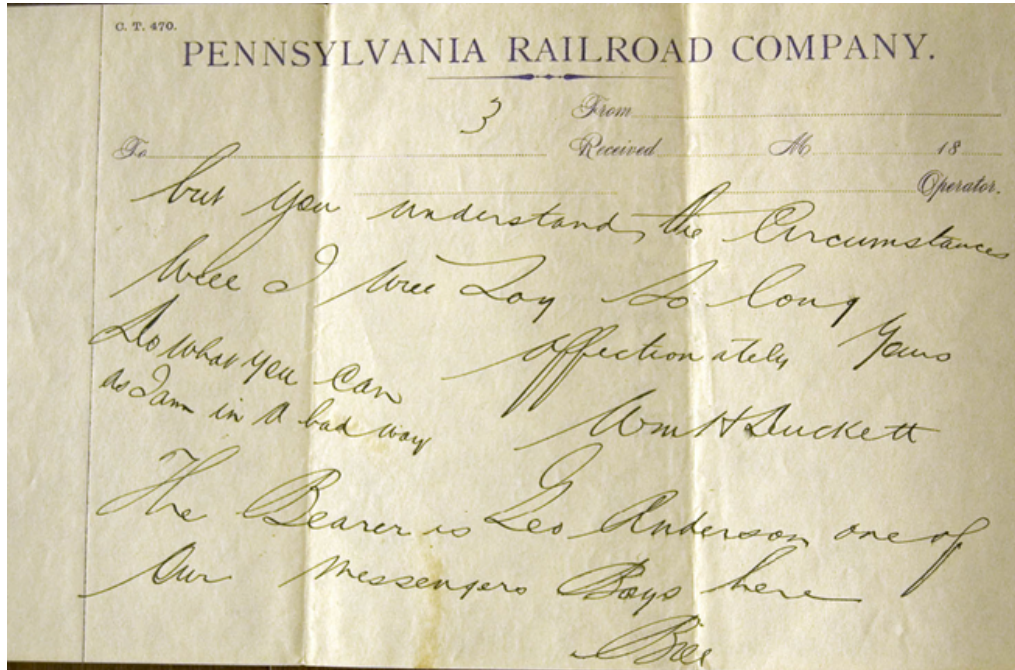 C. T. 470.
PENNSYLVANIA RAILROAD COMPANY.
3
From
To Received M 18
Operator.
but you understand, the Circumstances
Well I will Say So long
affectionately Yours
Do what you can
as I am in a bad way
Wm H Duckett
The Bearer is Geo Anderson one of
Our Messengers Boys here
Bill